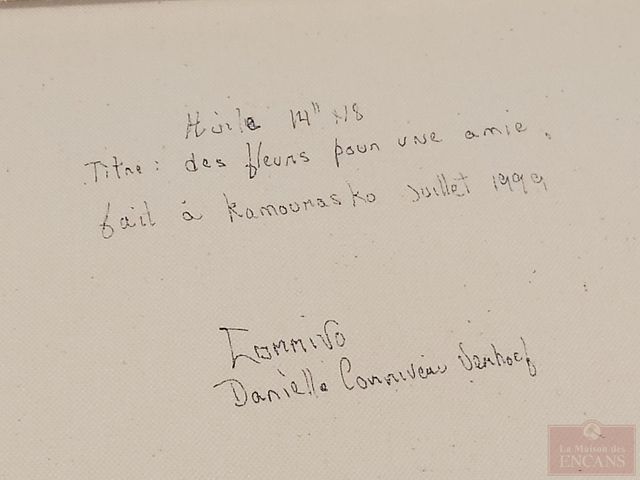 Huile 14" x18
Titre: des fleurs pour une amie.
fait à Kamouraska Juillet 1999
Corrivo
Danielle Corriveau Verhoef
La Maison des
ENCANS